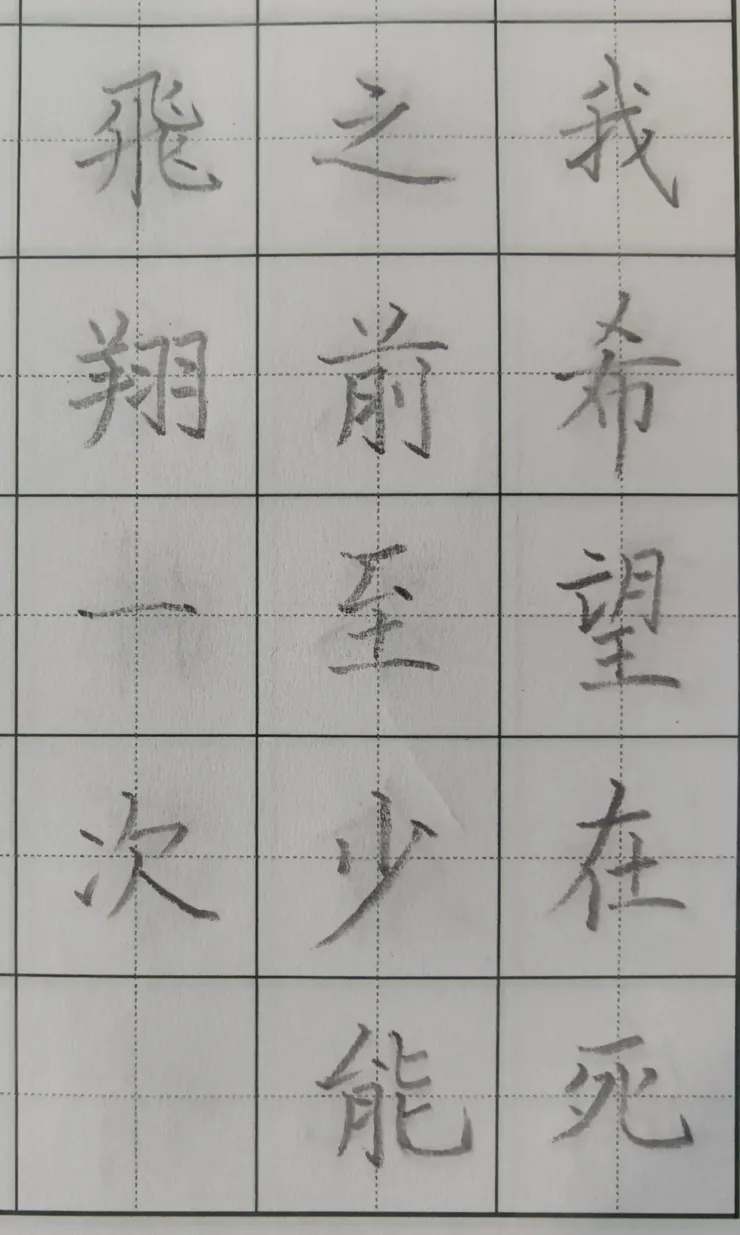 我希望在死
之前至少能
飛翔一次